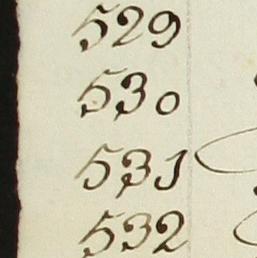 529
530
531
532